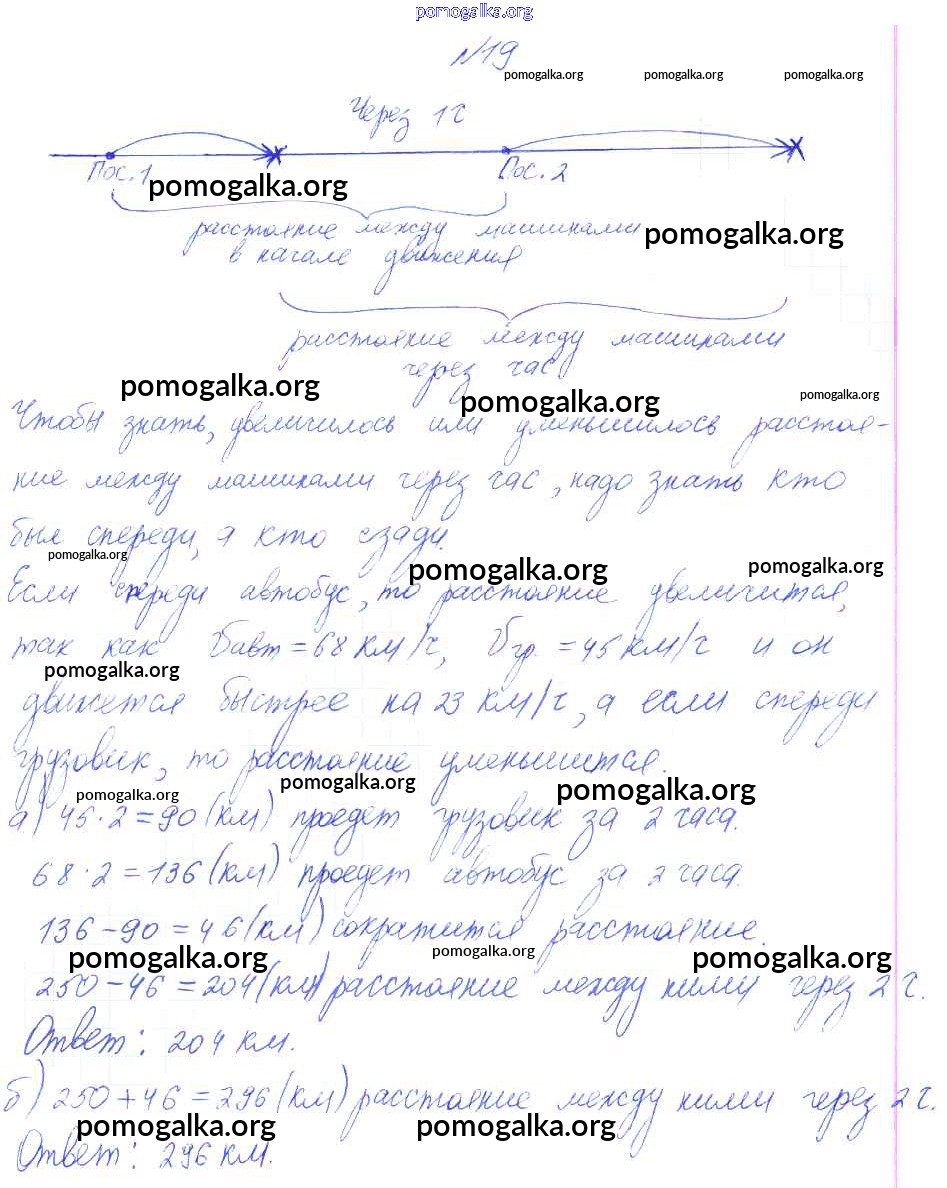 pomogalka.org
№19
pomogalka.org pomogalka.org pomogalka.org
Через 1 г
Пос. 1 Пос. 2
pomogalka.org
расстояние между машинами
pomogalka.org
в начале движения
расстояние между машинами
через час
pomogalka.org
pomogalka.org
pomogalka.org
Чтобы знать, увеличилось или уменьшилось расстоя-
ние между машинами через час, надо знать кто
был спереди, а кто сзади.
pomogalka.org
pomogalka.org
pomogalka.org
Если спереди автобус, то расстояние увеличится,
так как Vавт = 68 км/ч, Vгр. = 45 км/ч и он
pomogalka.org
движется быстрее на 23 км/ч, а если спереди
грузовик, то расстояние уменьшится.
pomogalka.org
pomogalka.org
pomogalka.org
а) 45 · 2 = 90 (км) проедет грузовик за 2 часа.
68 · 2 = 136 (км) проедет автобус за 2 часа.
136 - 90 = 46 (км) сократится расстояние.
pomogalka.org pomogalka.org pomogalka.org
250 - 46 = 204 (км) расстояние между ними через 2 ч.
Ответ: 204 км.
б) 250 + 46 = 296 (км) расстояние между ними через 2 ч.
pomogalka.org pomogalka.org
Ответ: 296 км.